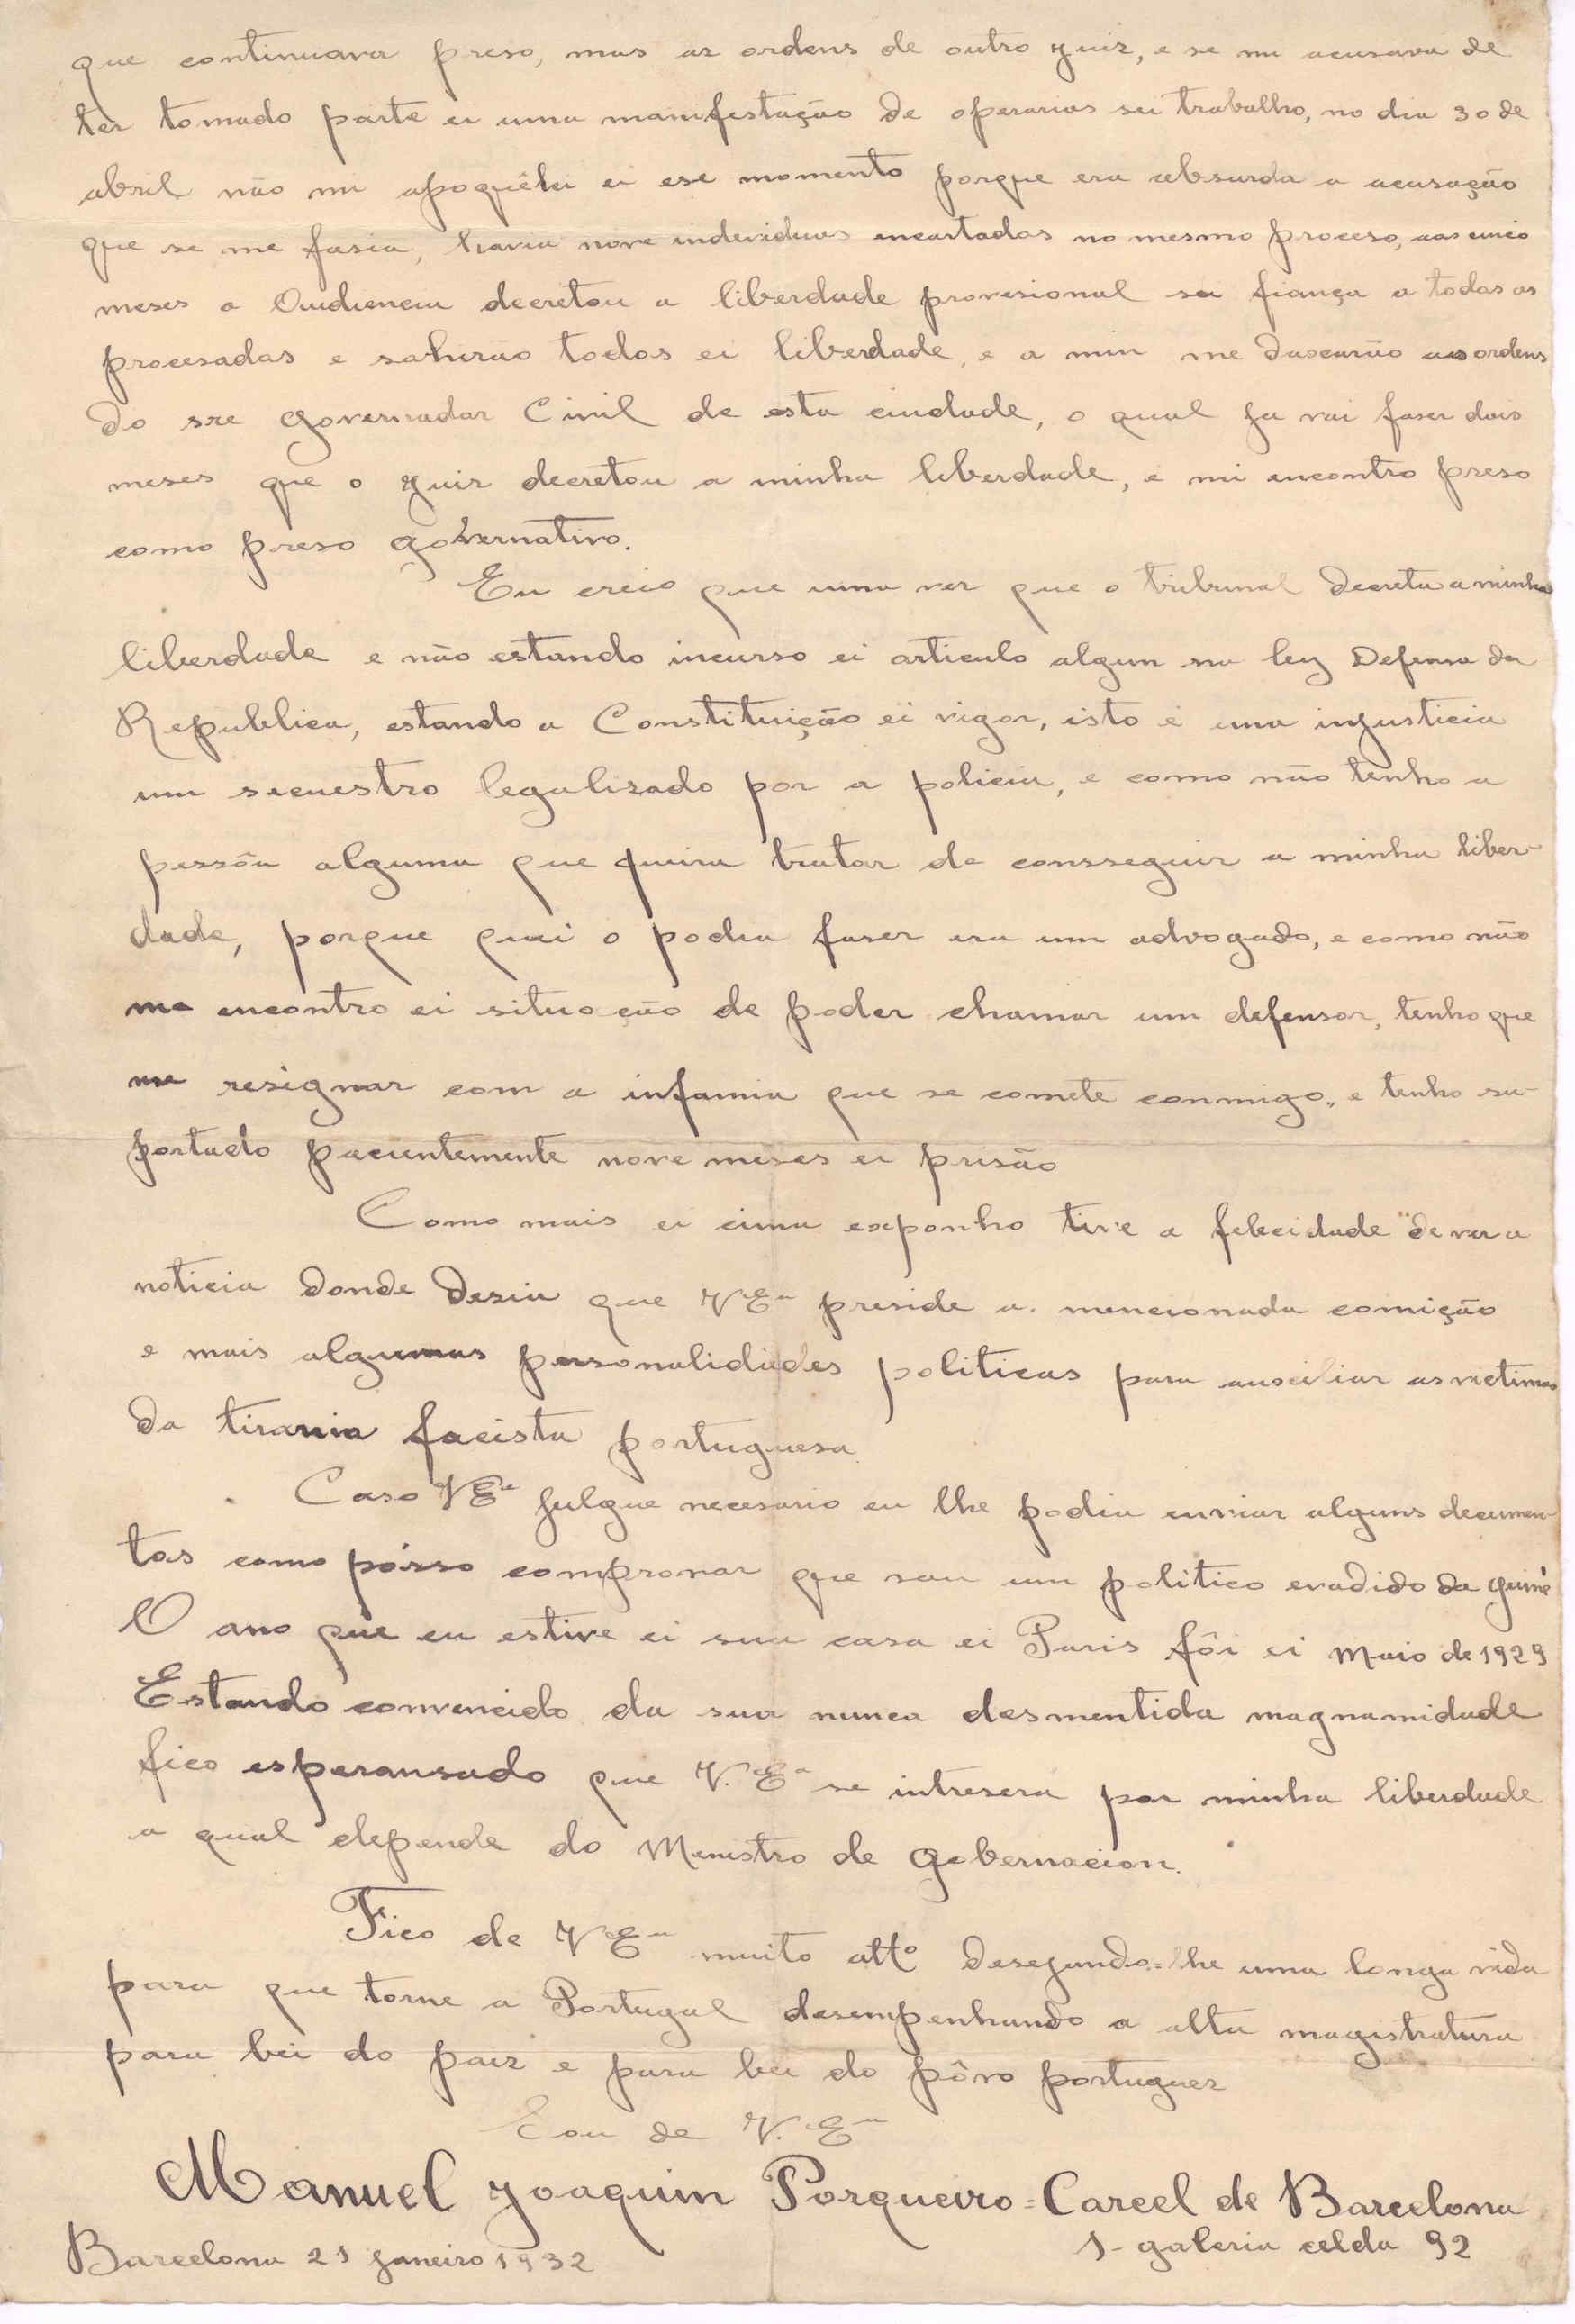 que continuava preso, mas as ordens de outro yuiz, e se mi acusava de
ter tomado parte ei uma manifestação de operarios sei trabalho, no dia 30 de
abril não mi apoquêtei ei ese momento porque era absurda a acusação
que se me fasia, havia nove individuos encartados no mesmo proceso, aos cinco
meses a Oudiencia decretou a liberdade provesional sei fiança a todos os
procesados e sahirão todos ei liberdade, e a min me daxarão aas ordens
do sre Governador Civil de esta ciudade, o qual ja vai faser dois
meses que o yuiz decretou a minha liberdade, e mi encontro preso
como preso governativo.
Eu creio que uma vez que o tribunal decreta a minha
liberdade e não estando incurso ei articulo algun na ley Defensa da
Republica, estando a Constituição ei vigor, isto é uma injusticia
um secuestro legalizado por a policia, e como não tenho a
pessôa alguma que queira tratar de consseguir a minha liber-
dade, porque quei o podia faser era um advogado, e como não
me encontro ei situação de poder chamar um defensor, tenho que
me resignar com a infamia que se comete conmigo,, e tenho su-
portado pacientemente nove meses ei prisão
Como mais ei cima exponho tive a felecidade de ver a
noticia donde desia que V Eª preside a mencionada comição
e mais algumas personalidades politicas para auxciliar as victimas
da tirania facista portuguesa.
Caso V Eª julgue necesario eu lhe podia enviar alguns decumen-
tos como pósso comprovar que sou um politico evadido da guiné
O ano que eu estive ei sua casa ei Paris fôi ei Maio de 1929
Estando convencido da sua nunca desmentida magnamidade
fico esperansado que V. Eª se intresera por minha liberdade
a qual depende do Menistro de Gobernacion.
Fico de V Eª muito attº desejando-lhe uma longa vida
para que torne a Portugal desempenhando a alta magistratura
para bei do paiz e para bei do pôvo portuguez
Sou de V. Eª
Manuel Joaquim Porqueiro = Carcel de Barcelona
1- galeria celda 92
Barcelona 21 janeiro 1932